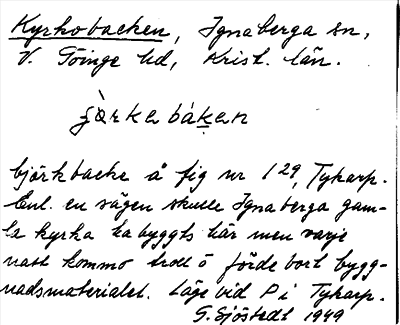 Kyrkobacken, Ignaberga sn,
V. Göinge hd, Krist. län.
jàrkabákan
björkbacke å fig nr 129, Tykarp.
Enl. en sägen skulle Ignaberga gam-
la kyrka ha byggts här men varje
natt kommo troll o förde bort bygg-
nadsmaterialet. Läge vid P i Tykarp.
G. Sjöstedt 1949